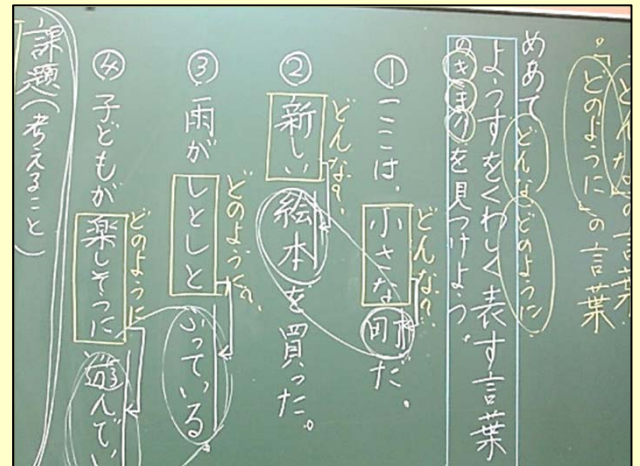 「どんな」の言葉
。「どのように」の言葉
めあて
どんな どのように
ようすをくわしく表す言葉
のきまりを見つけよう。
どんな?
① ここは、小さな町だ。
どんな?
② 新しい絵本を買った。
どのように?
③ 雨がしとしとふっている
どのように
④ 子どもが楽しそうに遊んでい
課題(考えること)